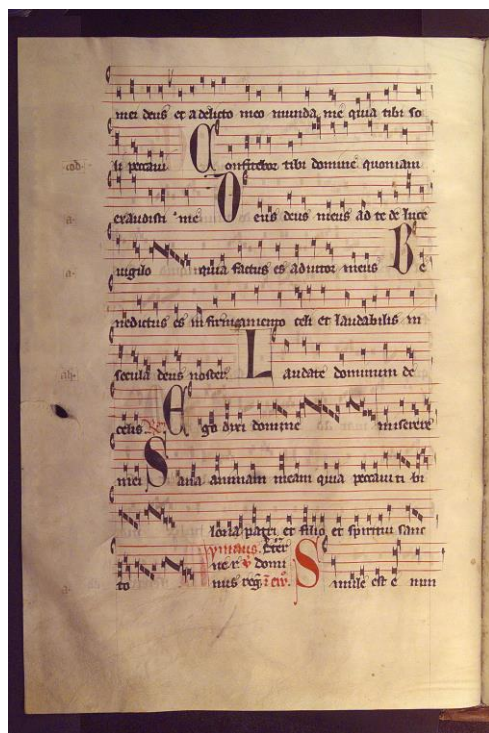 mei deus et a delicto meo munda me quia tibi so
li peccavi Confitebor tibi domine quoniam
exaudisti me Deus deus meus ad te de luce
vigilo quia factus es adiutor meus Be
nedictus es in firmamento celi et laudabilis in
secula deus noster Laudate dominum de
celis Ego dixi domine miserere
mei Sana animam meam quia peccavi ti bi
loria patri et filio et spiritui sanc
to
ne r. domi
nus reg. Simile est e nim